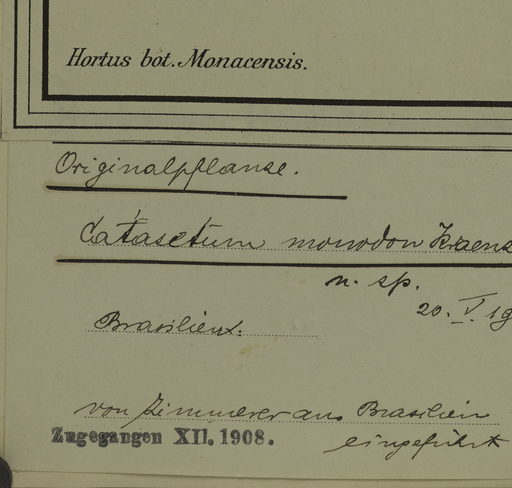 Hortus bot. Monacensis.
Originalpflanze.
Catasetum monodon Kraenz
n. sp.
20. V. 19
Brasilien.
von Zimmerer aus Brasilien
Zugegangen XII. 1908.
eingeführt